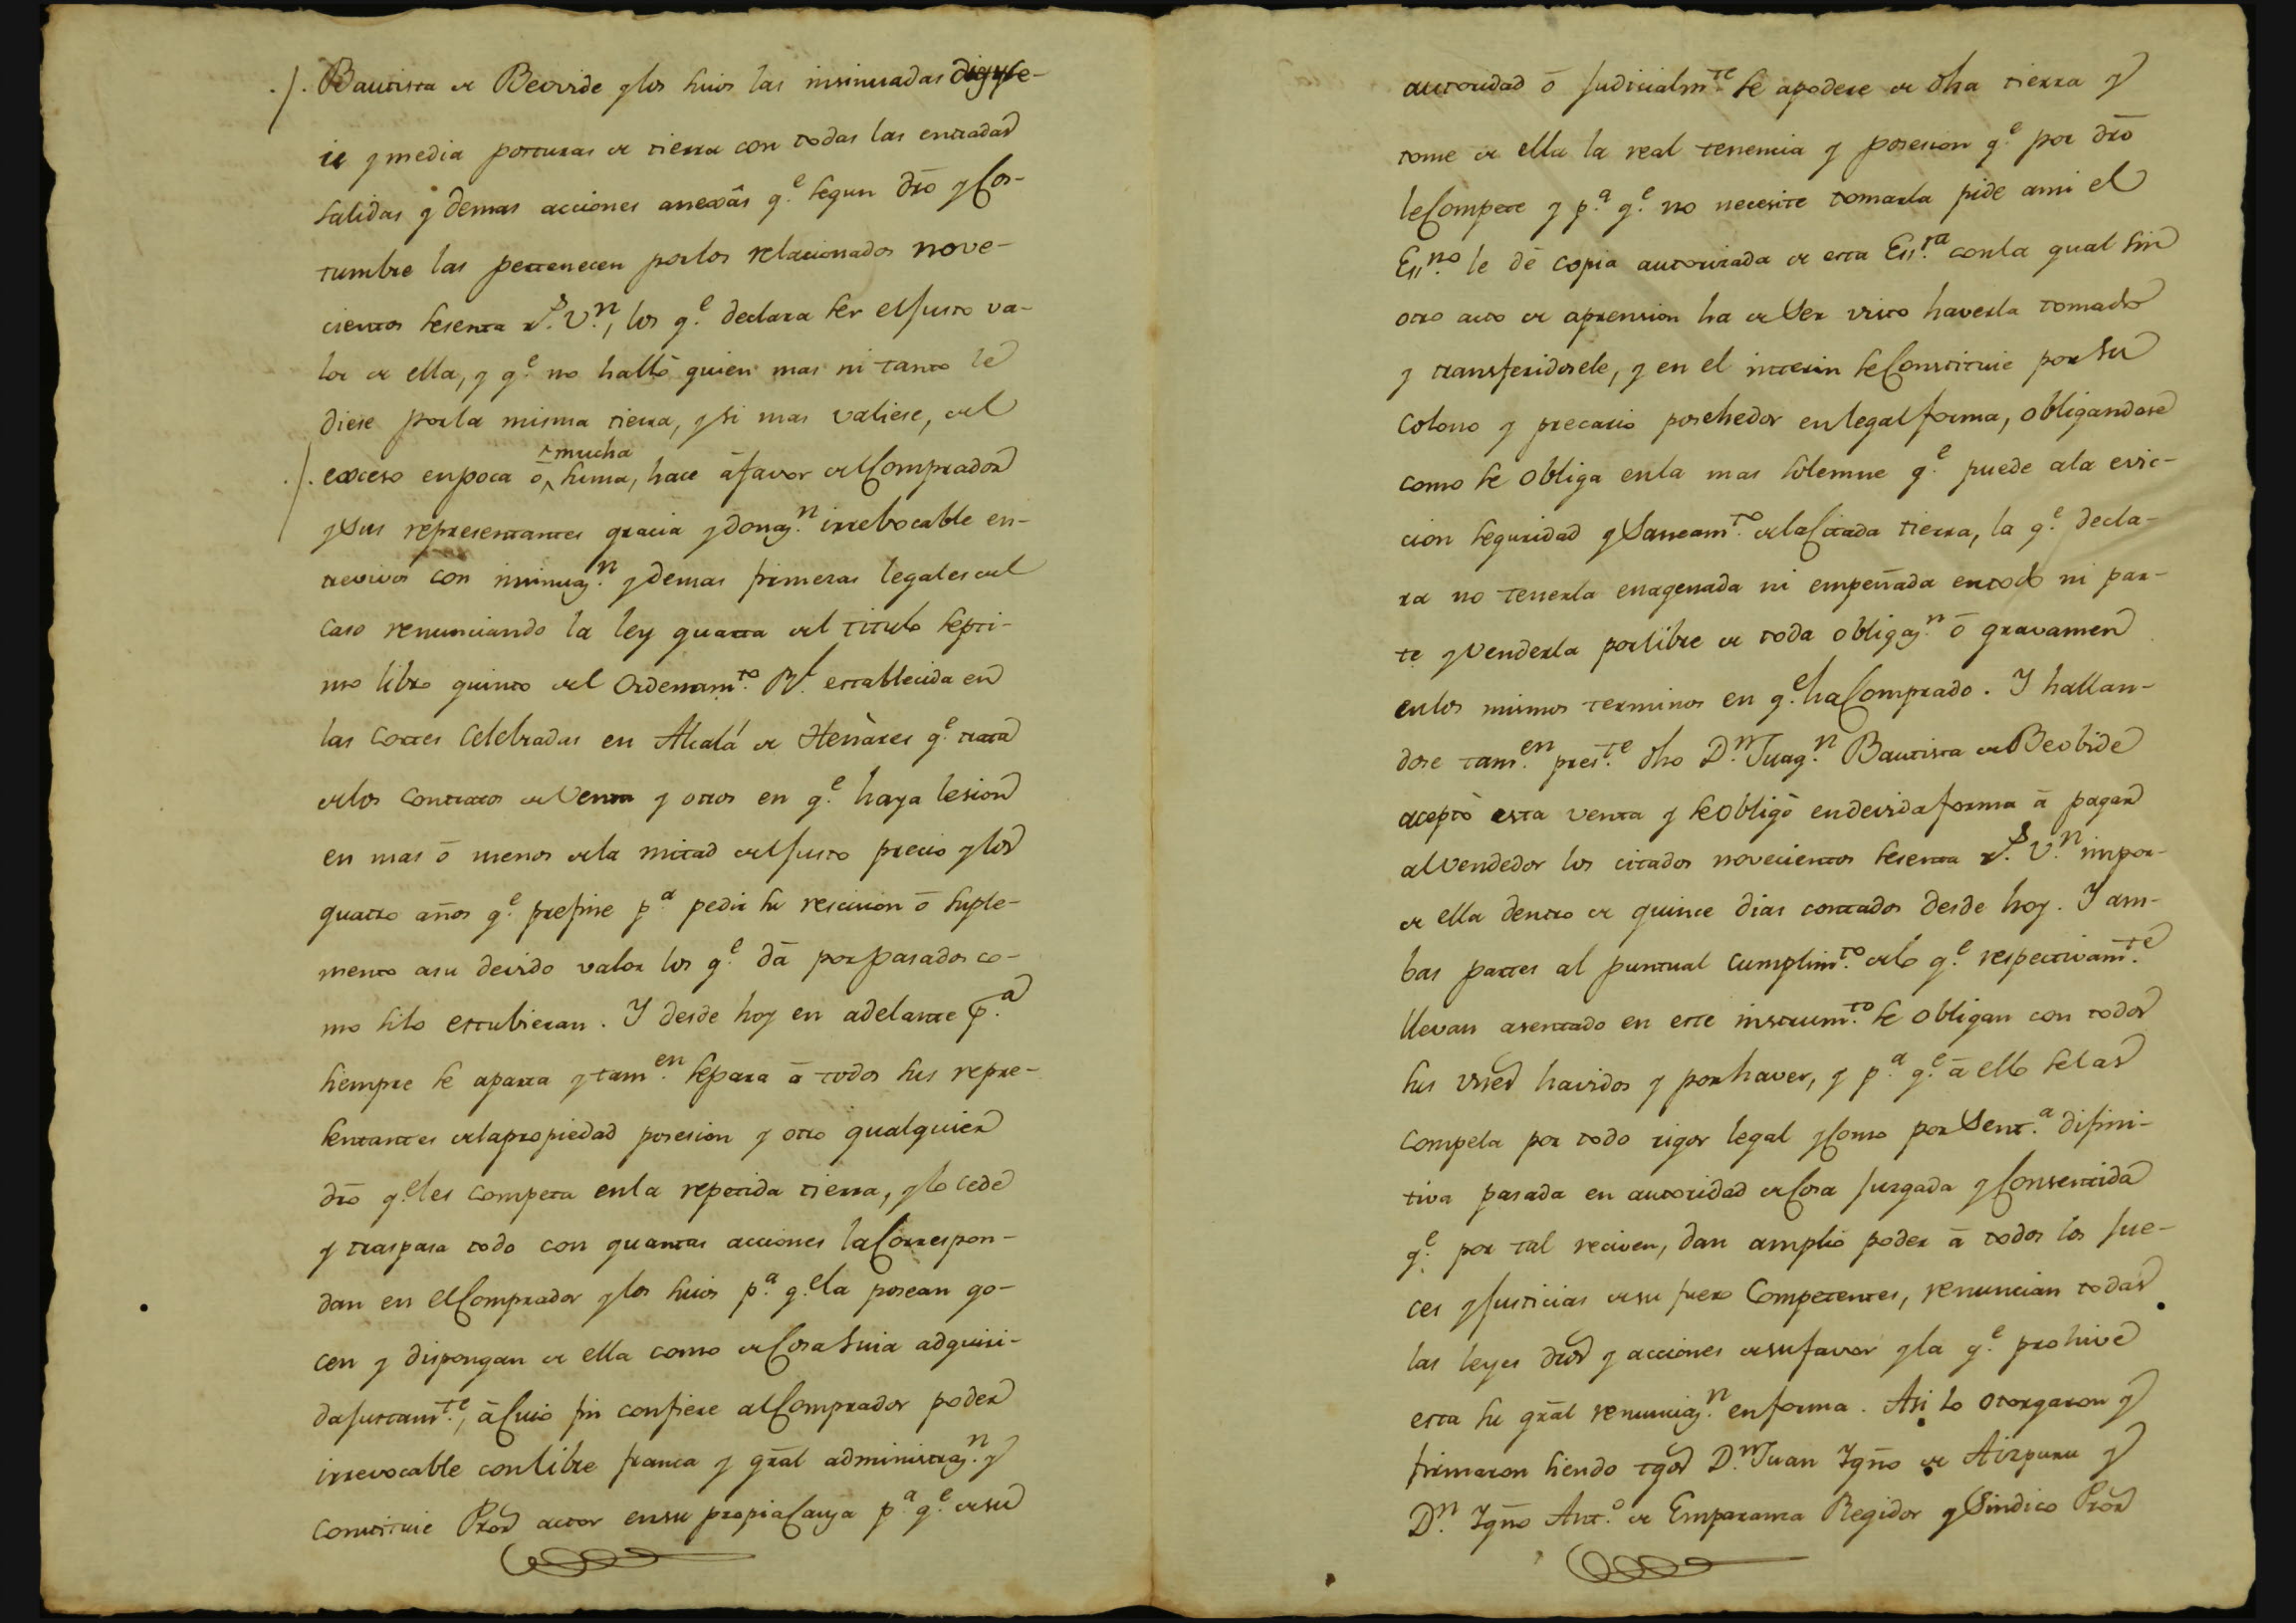 ./. Bautista de Beovide y los suios las insinuadas diez y se-
is y media posturas de tierra con todas las entradas
salidas y demas acciones anexâs q.e segun dr̃o y Cos-
tumbre las pertenecen por los relacionados nove-
cientos sesenta r.s v.n, los q.e declara ser el justo va-
lor de ella, y q.e no halló quien mas ni tanto le
diese por la misma tierra, y si mas valiese, del
./. exceso en poca ō mucha suma, hace ā favor del Comprador
y sus representantes gracia y donaz.n irrebocable en-
trevivos con insinuaz.n y demas firmezas legales del
caso renunciando la ley quarta del titulo septi-
mo libro quinto del Ordenam.to R.l establecida en
las Cortes Celebradas en Alcalá de Henàres q.e trata
de los contratos de Venta y otros en q.e haya lesion
en mas ō menos de la mitad del justo precio y los
quatro años q.e prefine p.a pedir su rescision ō suple-
mento a su devido valor los q.e dā por pasados co-
mo si lo estubieran. Y desde hoy en adelante p.a
siempre se aparta y tam.en separa ā todos sus repre-
sentantes de la propiedad posesion y otro qualquier
dr̃o q.e les competa en la repetida tierra, y lo cede
y traspasa todo con quantas acciones la Correspon-
dan en el Comprador y los suios p.a q.e la posean go-
cen y dispongan de ella como de Cosa suia adquiri-
da justam.te, ā Cuio fin confiere al Comprador poder
irrevocable con libre franca y gr̃al administraz.n y
constituie Pror̃ actor en su propia Causa p.a q.e de su
autoridad ō judicialm.te se apodere de dh̃a tierra y
tome de ella la real tenencia y posesion q.e por dr̃o
le Compete y p.a q.e no necesite tomarla pide a mi el
Ess.no le dē copia autorizada de esta Ess.ra con la qual sin
otro acto de aprension ha de Ser visto haverla tomado
y transferidosele, y en el interin se Constituie por su
Colono y precario posehedor en legal forma, obligandose
como se obliga en la mas solemne q.e puede a la evic-
cion seguridad y Saneam.to de la Citada tierra, la q.e decla-
ra no tenerla enagenada ni empeñada en todo ni par-
te y Venderla por libre de toda obligaz.n ō gravamen
en los mismos terminos en q.e ha Comprado. Y hallan-
dose tam.en pres.te dh̃o D.n Juaq.n Bautista de Beobide
aceptò esta venta y se obligò en devida forma ā pagar
al Vendedor los citados novecientos sesenta r.s v.n impor-
de ella dentro de quince dias contados desde hoy. Y am-
bas partes al puntual cumplim.to de lo q.e respectivam.te
llevan asentado en este instrum.to se obligan con todos
sus vienes havidos y por haver, y p.a q.e ā ello se las
compela por todo rigor legal y Como por Sent.a difini-
tiva pasada en autoridad de Cosa juzgada y Consentida
q.e por tal reciven, dan amplio poder ā todos los jue-
ces y justicias de su fuero Competentes, renuncian todas
las leyes dr̃os y acciones de su favor y la q.e prohive
esta su gr̃al renunciaz.n en forma. Asi lo otorgaron y
firmaron siendo tgos D.n Juan Ygñ̃o de Aizpuru y
D.n Ygñ̃o Ant.o de Emparanza Regidor y Sindico Pror̃